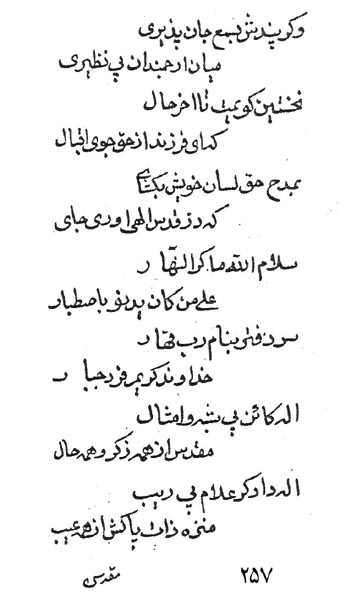 وکر پندش بسمع جان پذیری
میان ارجمندان بی نظیری
نخستین کویمت تا اخر حال
که ای فرزند از حق جوی اقبال
بمدح حق لسان خویش بکشای
که در قدس الهی اوری جای
سلام الله ما کر النهار
علی من کان یدنو باصطبار
سر دفتر بنام رب قهار
خداوند کریم فرد جبار
اله کائن بی شبه و امثال
مقدس از همه ذکر و همه حال
اله دادکر علام بی ریب
منزه ذات پاکش از همه عیب
۲۵۷
مقدسی